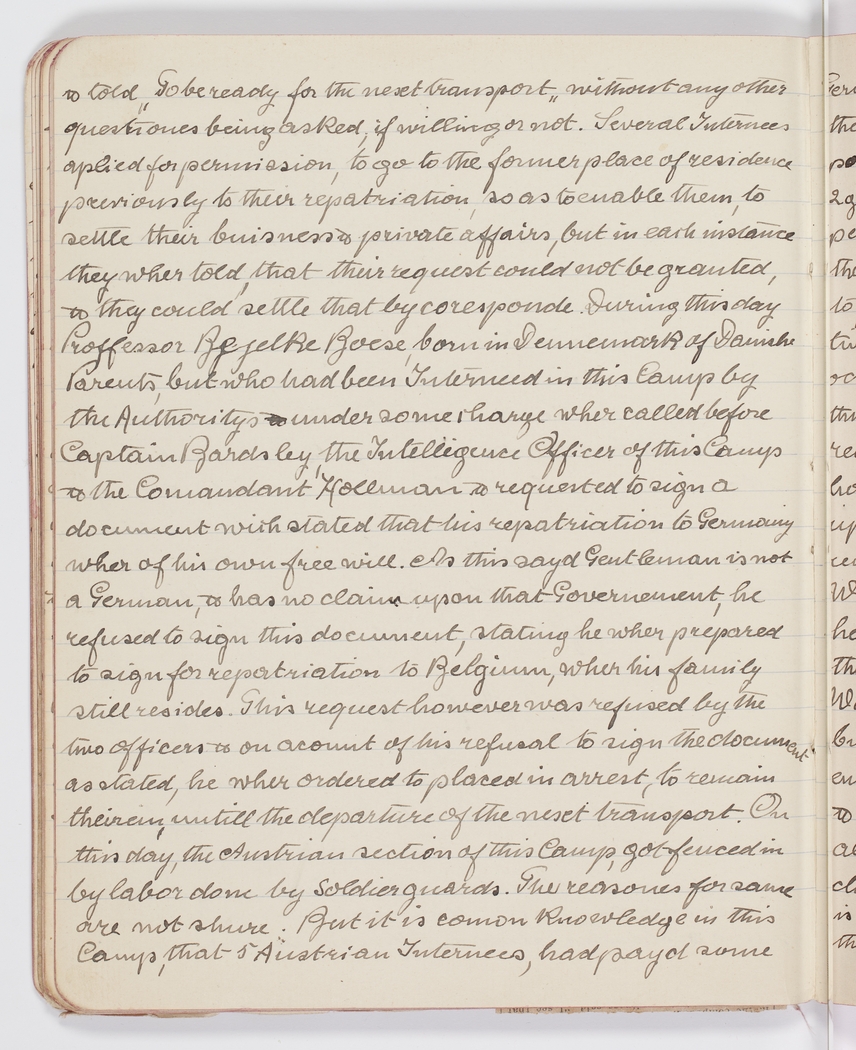 & told „To be ready for the next transport„ without any other
questiones being asked, if willing or not. Several Internees
aplied for permission, to go to the former place of residence
previously to their repatriation, so as to enable them, to
settle their buisness & private affairs, but in each instance
they wher told, that their request could not be granted,
& they could settle that by coresponde. During this day
Proffessor Bejelke Boese, born in Dennemark of Danishe
Parents, but who had been Interneed in this Camp by
the Authoritys under some charge wher called before
Captain Bardsley, the Intelligence Officer of this Camp
& the Comandant Hollman & requested to sign a
document wich stated that his repatriation to Germany
wher of his own free will. As this sayd Gentleman is not
a German, & has no claim upon that Governement, he
refused to sign this document, stating he wher prepared
to sign for repatriation to Belgium, wher his family
still resides. This request however was refused by the
two officers & on acount of his refusal to sign the document
as stated, he wher ordered to placed in arrest, to remain
therein, untill the departure of the next transport. On
this day, the Austrian section of this Camp, got fenced in
by labor done by Soldier guards. The reasones for same
are not shure. But it is comon knowledge in this
Camp, that 5 Austrian Internees, had payd some